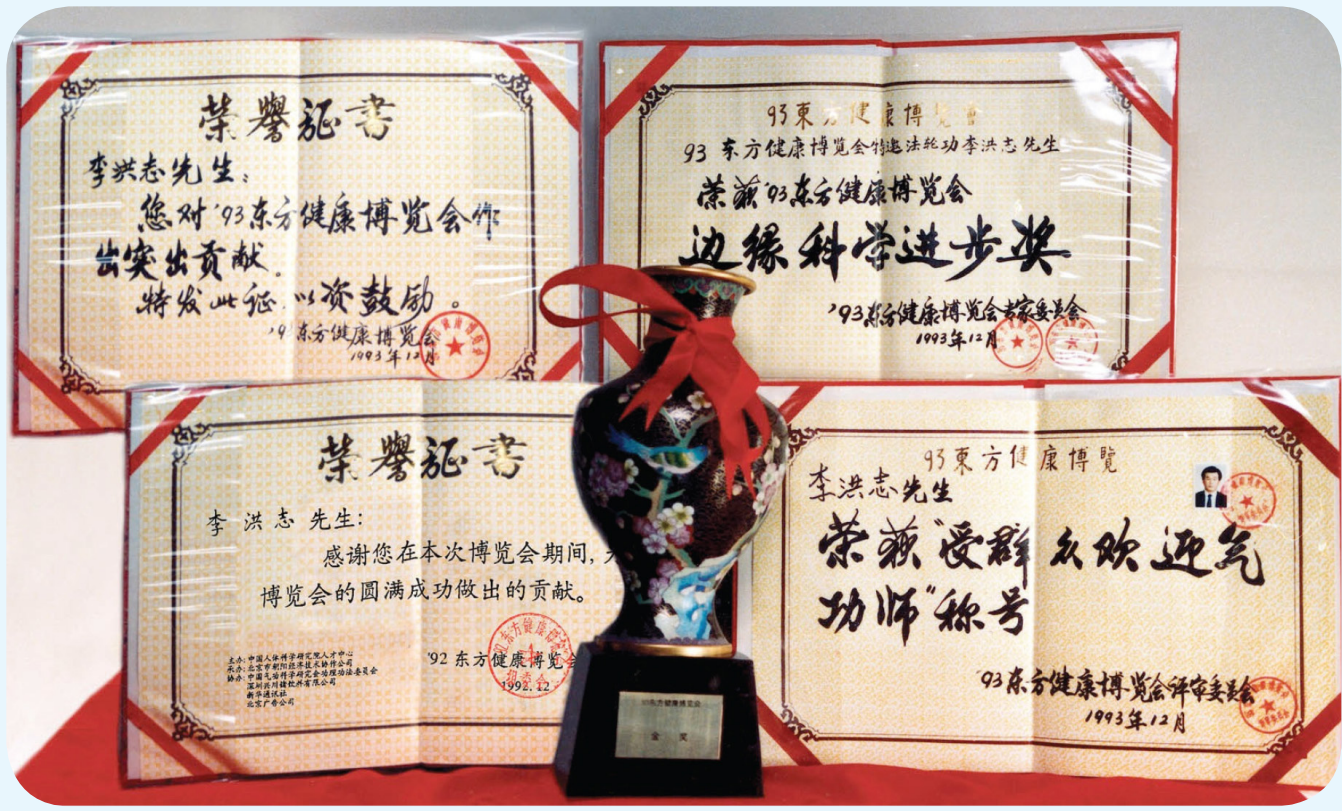 荣誉证书
李洪志先生：
您对'93东方健康博览会作
出突出贡献。
特发此证 以资鼓励。
东方健康博览会
1993年12月
93東方健康博覽會
93 东方健康博览会特邀法轮功李洪志先生
荣获'93东方健康博览会
边缘科学进步奖
'93东方健康博览会专家委员会
1993年12月
荣誉证书
李洪志 先生：
感谢您在本次博览会期间，
博览会的圆满成功做出的贡献。
主办：中国人体科学研究院人才中心
承办：北京市朝阳经济技术协作公司
协办：中国气功科学研究会功理功法委员会
新华通讯社
北京广告公司
'92 东方健康博览会
1992.12
93東方健康博覽
李洪志先生
荣获"受群众欢迎气
功师"称号
'93东方健康博览会评审委员会
1993年12月
东方健康博览会
金 奖